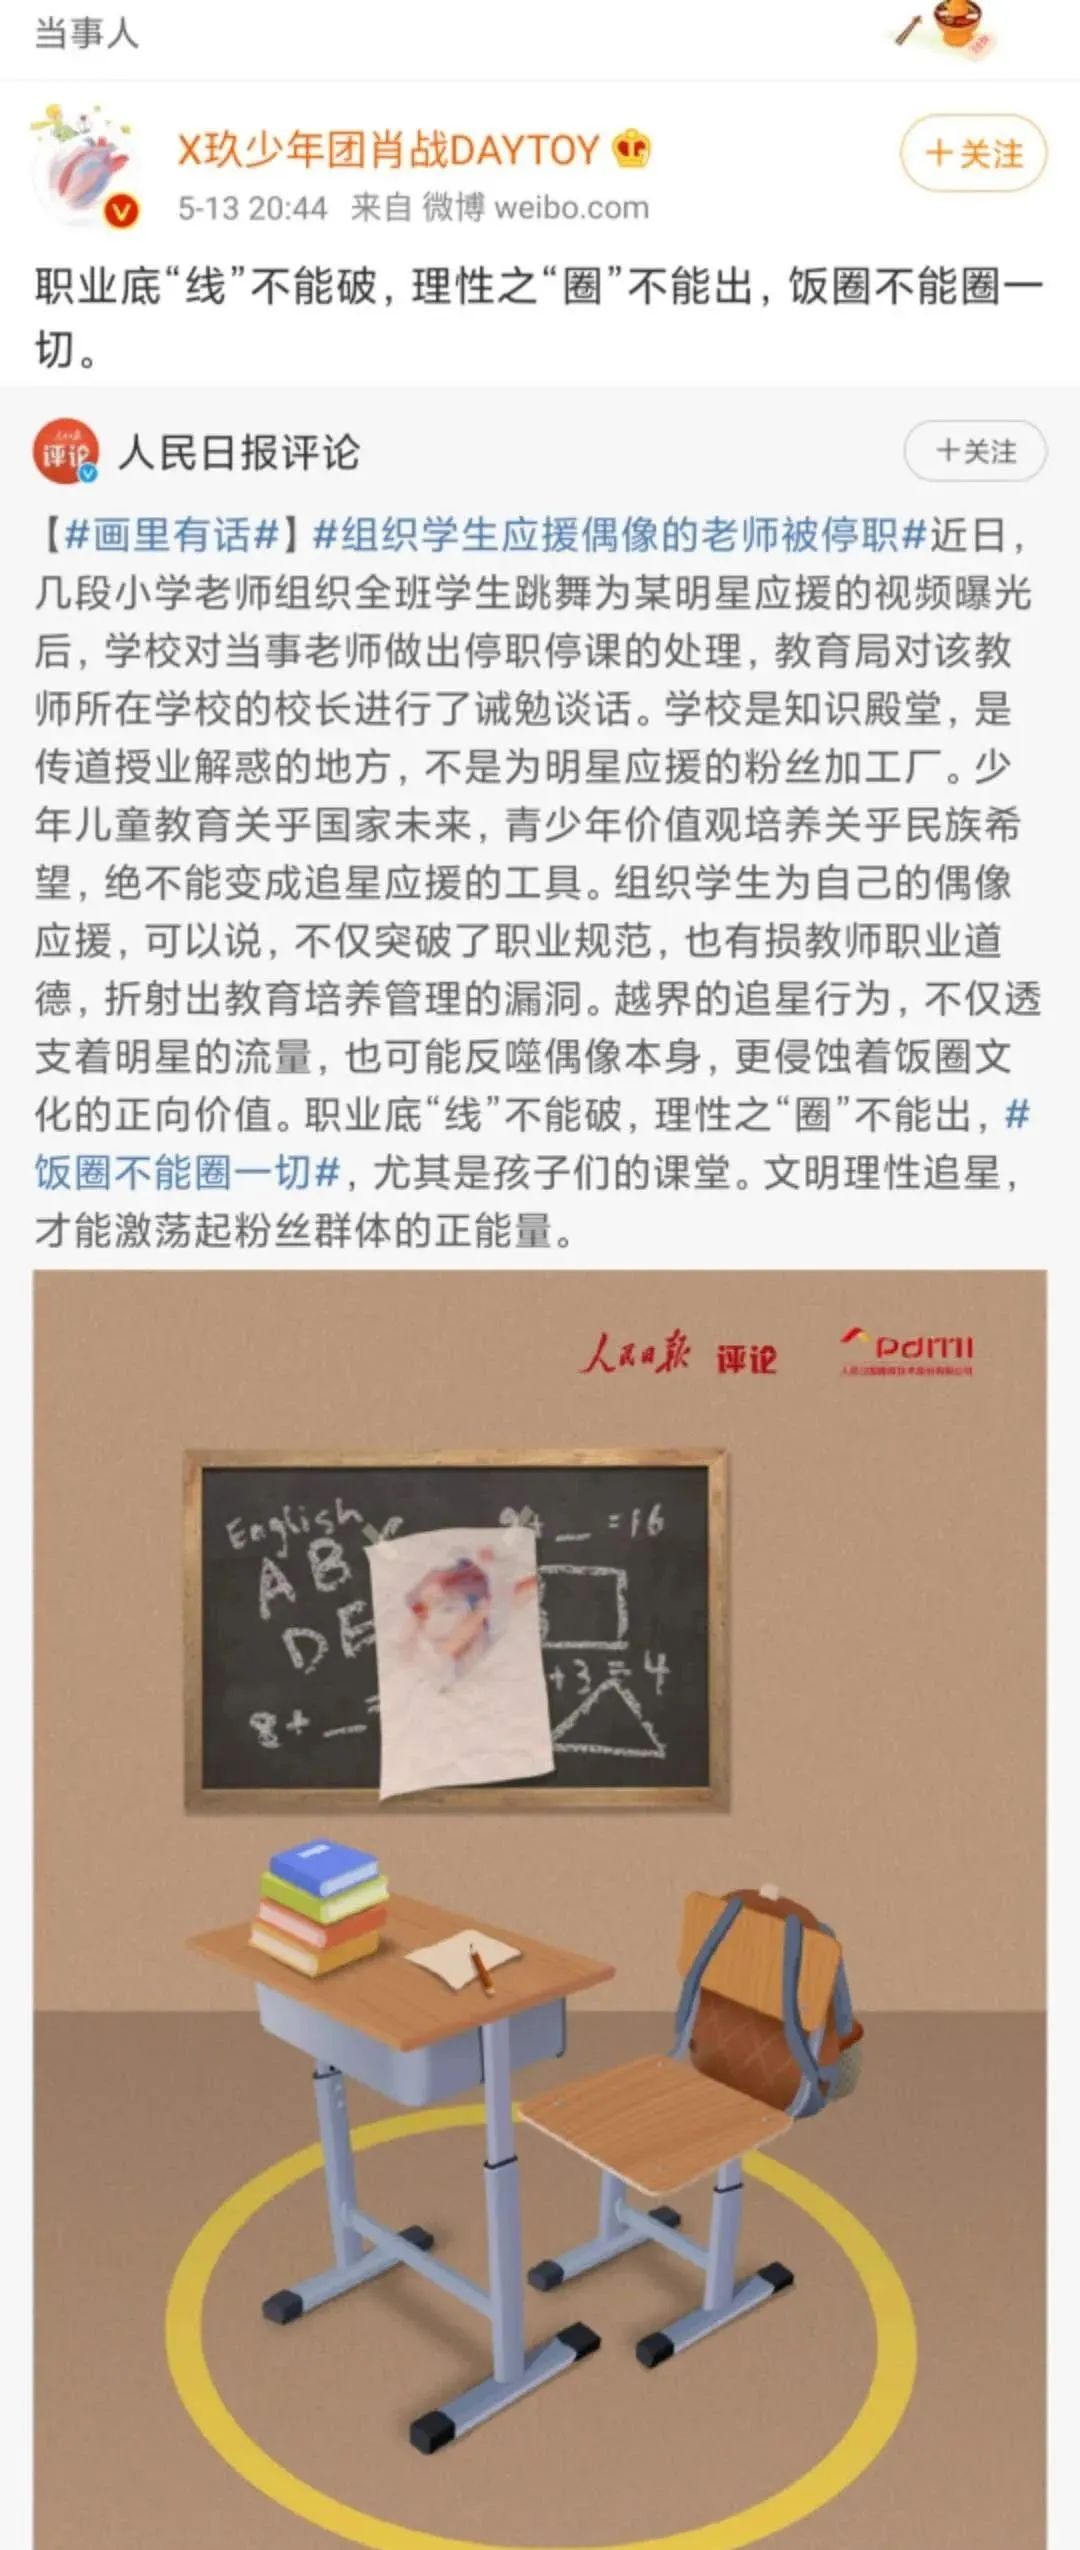 当事人
X玖少年团肖战DAYTOY
+关注
5-13 20:44 来自 微博 weibo.com
职业底“线”不能破，理性之“圈”不能出，饭圈不能圈一
切。
评论
人民日报评论
+关注
【#画里有话#】#组织学生应援偶像的老师被停职#近日，
几段小学老师组织全班学生跳舞为某明星应援的视频曝光
后，学校对当事老师做出停职停课的处理，教育局对该教
师所在学校的校长进行了诫勉谈话。学校是知识殿堂，是
传道授业解惑的地方，不是为明星应援的粉丝加工厂。少
年儿童教育关乎国家未来，青少年价值观培养关乎民族希
望，绝不能变成追星应援的工具。组织学生为自己的偶像
应援，可以说，不仅突破了职业规范，也有损教师职业道
德，折射出教育培养管理的漏洞。越界的追星行为，不仅透
支着明星的流量，也可能反噬偶像本身，更侵蚀着饭圈文
化的正向价值。职业底“线”不能破，理性之“圈”不能出，#
饭圈不能圈一切#，尤其是孩子们的课堂。文明理性追星，
才能激荡起粉丝群体的正能量。
人民日报 评论
pdmi
English
+ _ =16
A B
D E
+3=4
8+ _ =